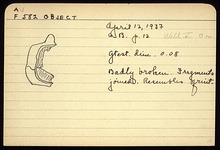 A
F 582 OBJECT
April 12, 1937
N.B. p. 12
Gtest. dim. 0.08
Badly broken. Fragments
joined. Resembles fruit.